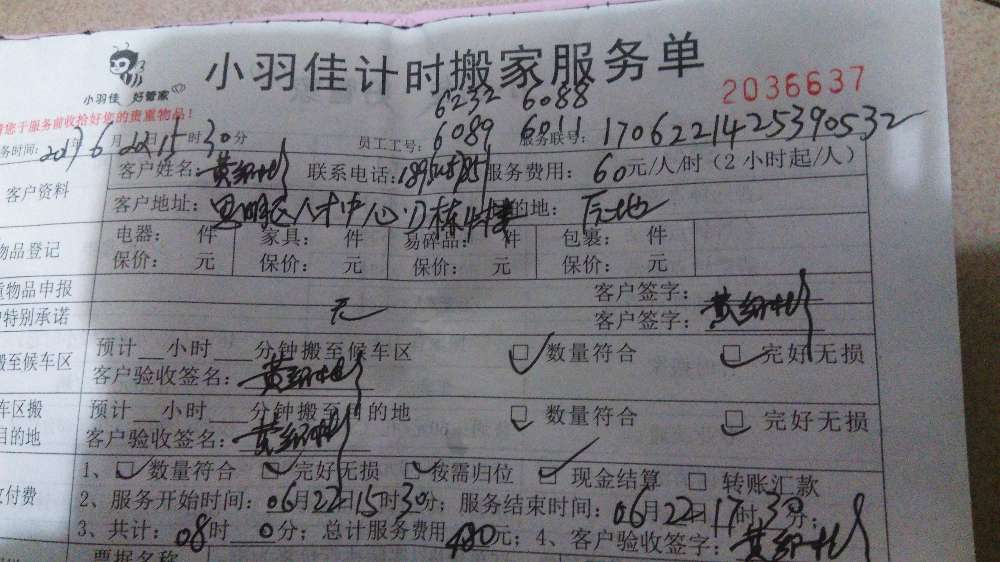 小羽佳计时搬家服务单
小羽佳 好管家
2036637
请您于服务前收拾好您的贵重物品！
6232 6088
6089 6011
务时间: 2017年6月22日15时30分 员工工号: 服务联号: 1706221425390532
客户资料
客户姓名: 联系电话: 服务费用: 60元/人/时（2小时起/人）
客户地址: 思明区人才中心 的地: 原地
物品登记
电器: 件 家具: 件 易碎品: 件 包裹: 件
保价: 元 保价: 元 保价: 元 保价: 元
重物品申报 客户签字:
户特别承诺 无 客户签字:
搬至候车区
预计__小时___分钟搬至候车区 数量符合 完好无损
客户验收签名:
车区搬
目的地
预计__小时___分钟搬至目的地 数量符合 完好无损
客户验收签名:
收付费
1、 数量符合 完好无损 按需归位 现金结算 转账汇款
2、服务开始时间: 06月22日15时30分; 服务结束时间: 06月22日17时30分;
3、共计: 08时0分; 总计服务费用480元; 4、客户验收签字:
票据名称